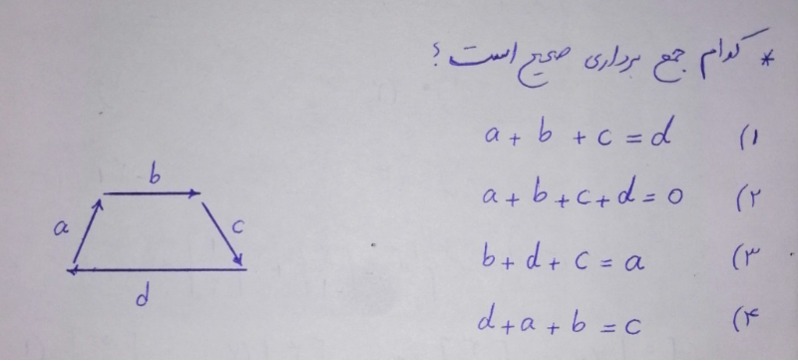 * کدام جمع برداری صحیح است؟
۱) a + b + c = d
۲) a + b + c + d = 0
۳) b + d + c = a
۴) d + a + b = c
b
a
c
d